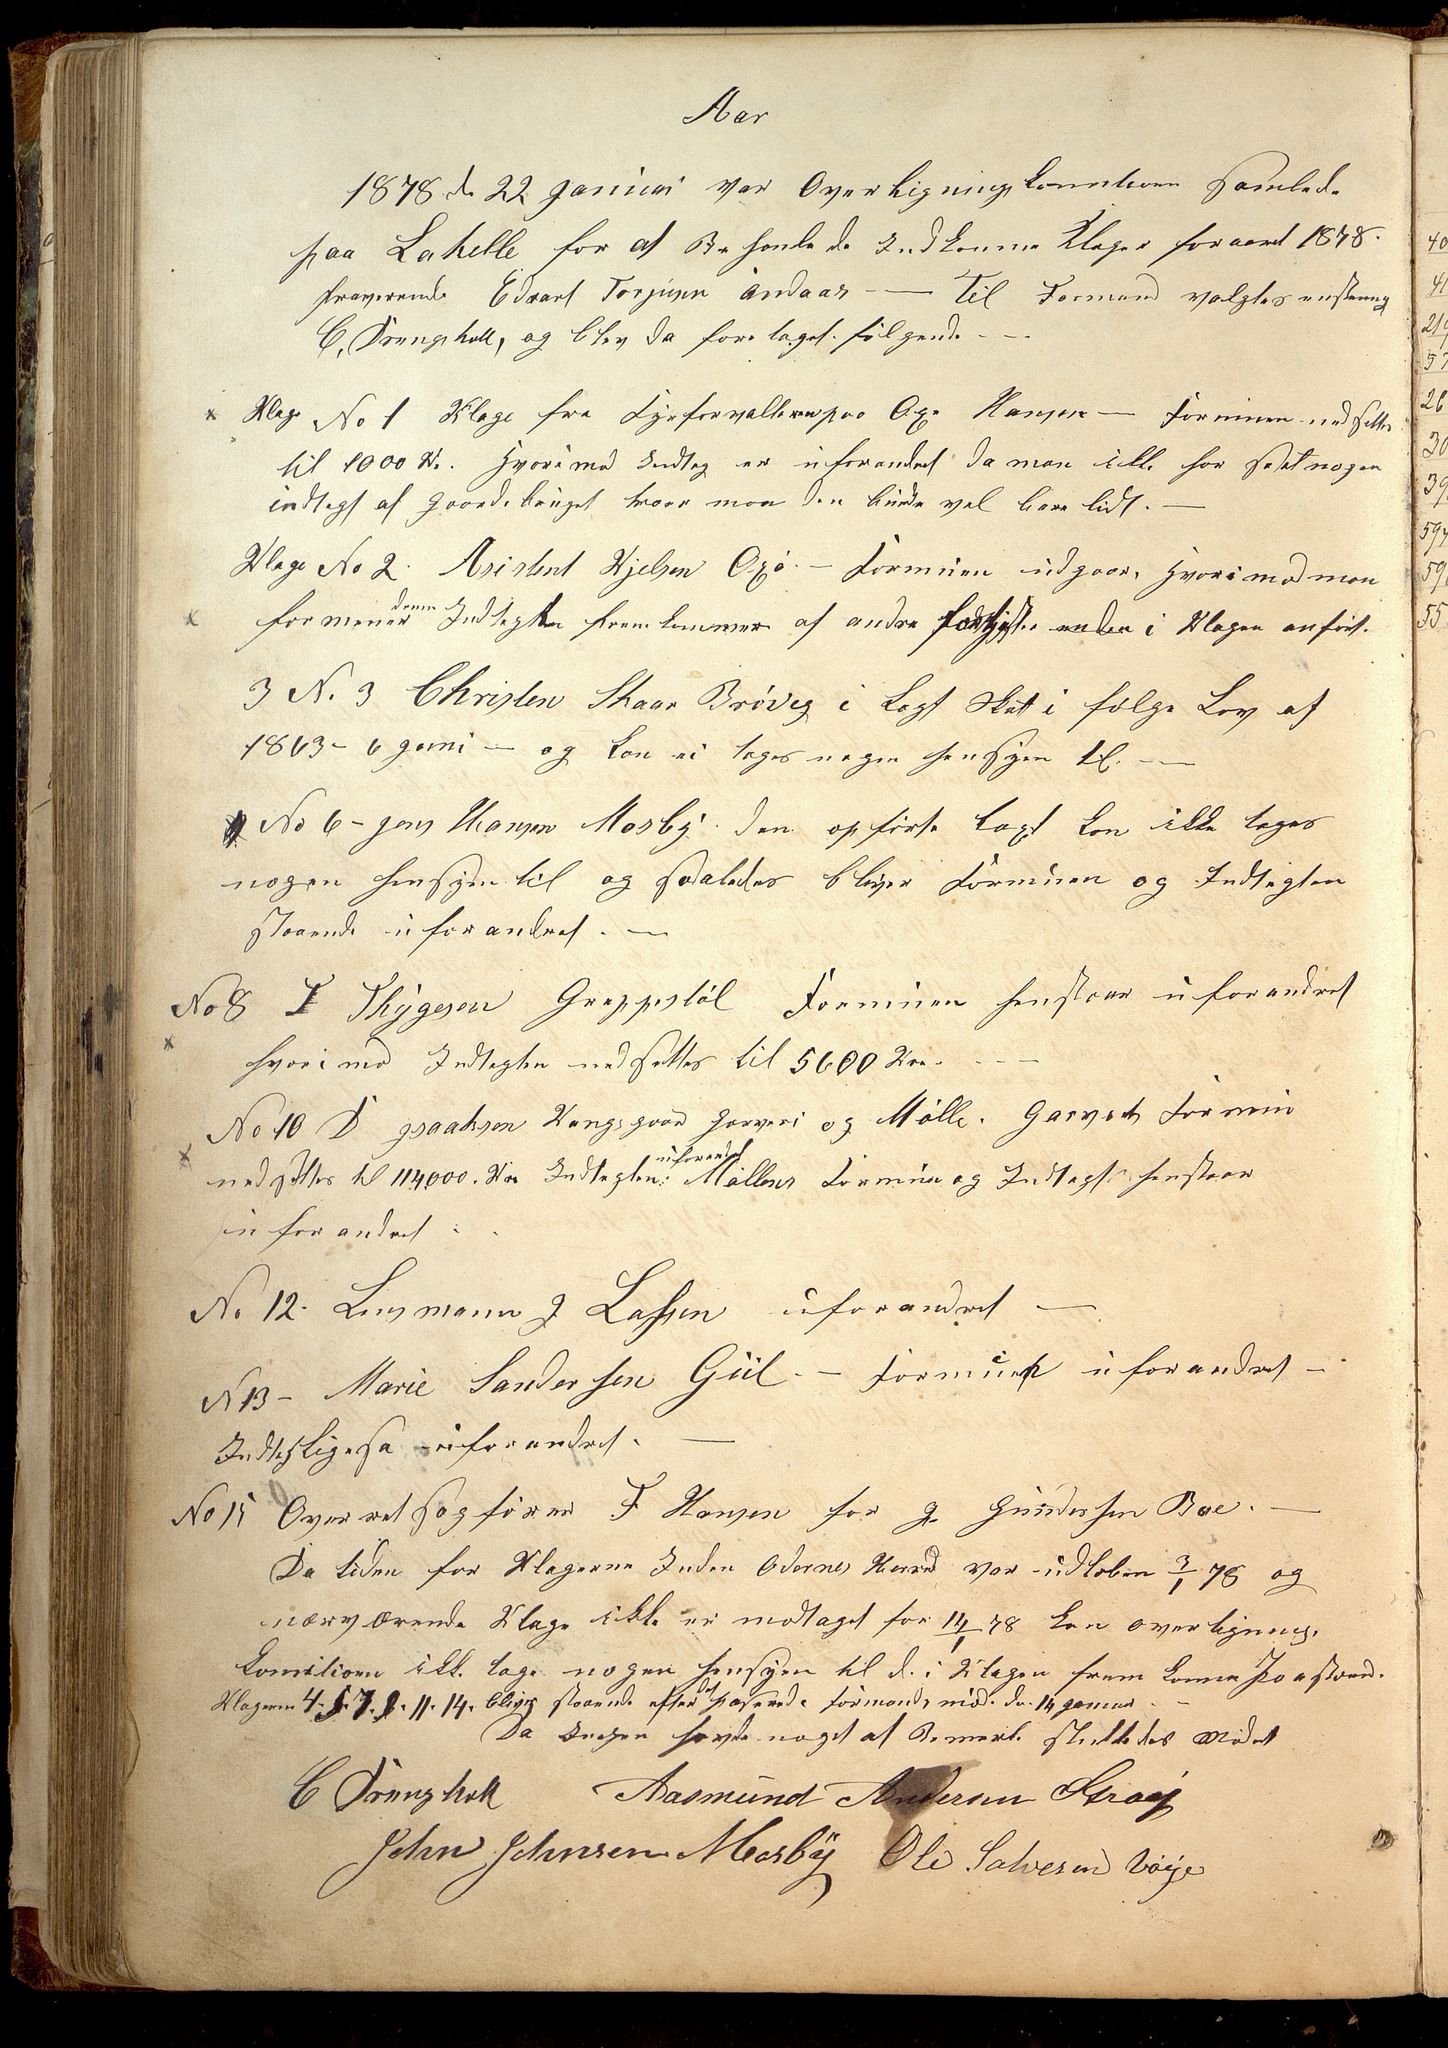 Aar
1878 d. 22 Januar var Overligningskommisionen samlede
paa Lahelle for at Behandle de Indkomne Klager for aaret 1878.
fraværende Edvart Torjusen Andaas — Til Formand valgtes enstemmig
C. Drengsholt, og blev da foretaget følgende —
Klage No 1 Klage fra Fyrforvalteren paa Oxø Hansen — Formuen nedsettes
til 1000 Kr. Hvorimod Indteg er uforandret da man ikke har sat nogen
indtegt af Gaardsbruget hvor man den burde vel bære lidt. —
Klage No 2. Asistent Kjelsen Oxø. — Formuen udgaar, Hvorimod man
formener denne Indtegten fremkommer af andre end i Klagen anført.
3 N. 3 Christen Skaar Brøvig i Lagt Skat i følge Lov af
1863 - 6 Juni — og kan ei tages nogen hensyn til. —
No 6 - Jens Hansen Mosby. den opførte Lagt kan ikke tages
nogen hensyn til og saaledes bliver Formuen og Indtegten
staaende uforandret. —
No 8 T Thygesen Greppestøl Formuen henstaar uforandret
hvorimod Indtegten nedsettes til 5600 Kr. —
No 10 D Isaaksen Kongsgaard Garveri og Mølle. Garveriets Formue
nedsettes til 114000. Kr Indtegten: uforandret Møllens Formue og Indtegt henstaar
uforandret.
No 12. Lensmann J Lassen uforandret —
N 13 - Marie Sandersen Giil. — Formuen uforandret —
Indteg Ligesaa uforandret. —
No 15 Overretsagfører F Hansen for J. Gundersen Boe. —
Da tiden for Klagerne Inden Oddernes Herred var udløben 3/1 78 og
nærværende Klage ikke er modtaget før 14/1 78 kan overlignings.
komisionen ikke tage nogen hensyn til de i Klagen fremkomne Paastand.
Klagerne 4. 5. 7. 9. 11. 14. bliver staaende efter det paserede formandsmøde den 14 Januar. —
Da Ingen havde noget at Bemerke sluttedes Mødet
C Drengsholt Aasmund Andersen Straÿ
John Johnsen Mosbÿ Ole Salvesen Vøije
40
41
219
57
26
30
39
594
59
55